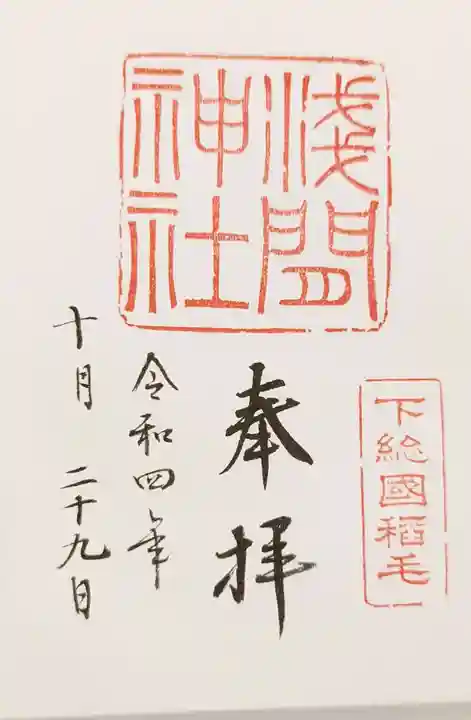 淺間
神社
下総國稲毛
奉拝
令和四年
十月 二十九日